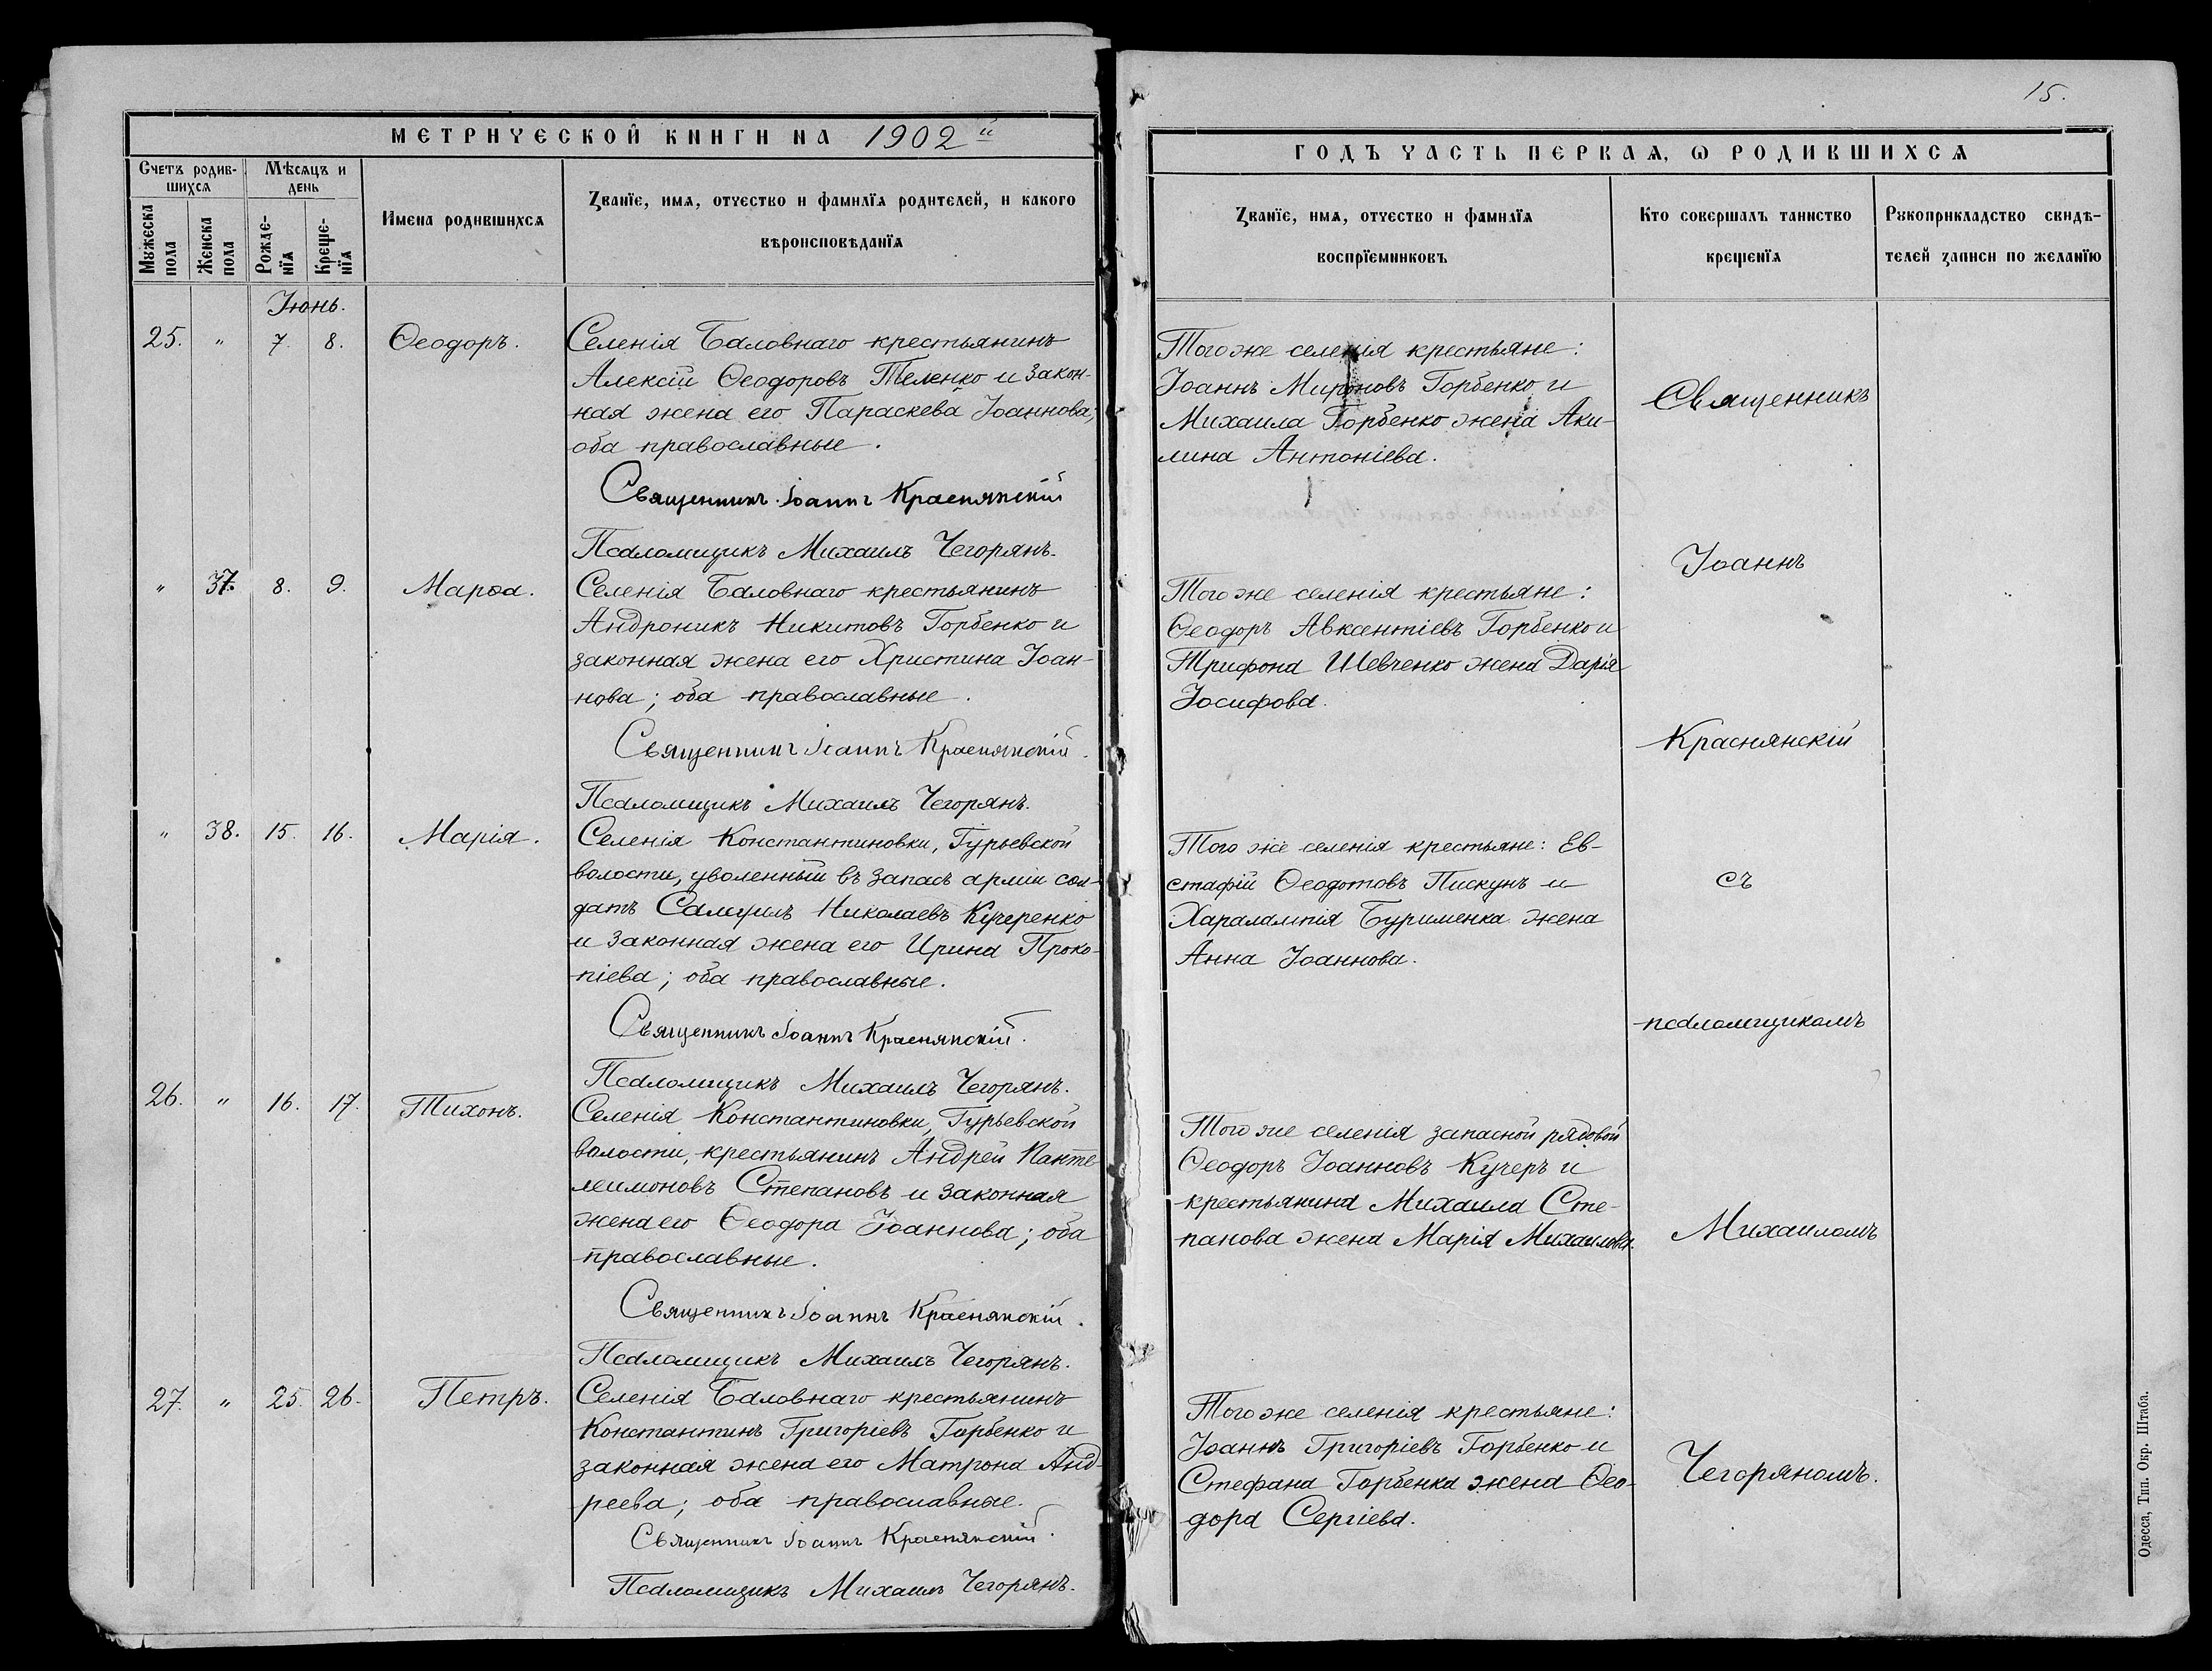 МЕТРИЧЕСКОЙ КНИГИ НА 1902 й
Счетъ родив-
шихся
Мѣсяцъ и
день
Мꙋжеска
пола
Женска
пола
Рожде-
нїя
Креще-
нїя
Имена родившихся
Званїе, имя, отчество и фамилїя родителей, и какого
вѣроисповѣданїя
Іюнь.
25. " 7. 8. Ѳеодоръ.
Селенія Баловнаго крестьянинъ
Алексій Ѳеодоровъ Теленко и закон-
ная жена его Параскева Іоаннова;
оба православные.
Священникъ Іоаннъ Краснянскій
Псаломщикъ Михаилъ Чегорянъ.
" 37. 8. 9. Марѳа.
Селенія Баловнаго крестьянинъ
Андроникъ Никитовъ Горбенко и
законная жена его Христина Іоан-
нова; оба православные.
Священникъ Іоаннъ Краснянскій.
Псаломщикъ Михаилъ Чегорянъ.
" 38. 15. 16. Марія.
Селенія Константиновки, Гурьевской
волости, уволенный въ запасъ арміи сол-
датъ Самуилъ Николаевъ Кучеренко
и законная жена его Ирина Проко-
піева; оба православные.
Священникъ Іоаннъ Краснянскій.
Псаломщикъ Михаилъ Чегорянъ.
26. " 16. 17. Тихонъ.
Селенія Константиновки, Гурьевской
волости, крестьянинъ Андрей Панте-
леимоновъ Степановъ и законная
жена его Ѳеодора Іоаннова; оба
православные.
Священникъ Іоаннъ Краснянскій.
Псаломщикъ Михаилъ Чегорянъ.
27. " 25. 26. Петръ.
Селенія Баловнаго крестьянинъ
Константинъ Григоріевъ Горбенко и
законная жена его Матрона Анд-
реева; оба православные.
Священникъ Іоаннъ Краснянскій.
Псаломщикъ Михаилъ Чегорянъ.
15.
ГОДЪ ЧАСТЬ ПЕРВАЯ, Ѡ РОДИВШИХСЯ
Званїе, имя, отчество и фамилїя
воспрїемниковъ
Кто совершалъ таинство
крещенїя
Рꙋкоприкладство свидѣ-
телей записи по желанїю
Того же селенія крестьяне:
Іоаннъ Мироновъ Горбенко и
Михаила Горбенко жена Аки-
лина Антоніева.
Того же селенія крестьяне:
Ѳеодоръ Авксентіевъ Горбенко и
Трифона Шевченко жена Дарія
Іосифова.
Того же селенія крестьяне: Ев-
стафій Ѳеодотовъ Пискунъ и
Харалампія Бурименка жена
Анна Іоаннова.
Того же селенія запасной рядовой
Ѳеодоръ Іоанновъ Кучеръ и
крестьянина Михаила Сте-
панова жена Марія Михаилова.
Того же селенія крестьяне:
Іоаннъ Григоріевъ Горбенко и
Стефана Горбенка жена Ѳео-
дора Сергіева.
Священникъ
Іоаннъ
Краснянскій
съ
псаломщикомъ
Михаиломъ
Чегоряномъ.
Одесса, Тип. Окр. Штаба.